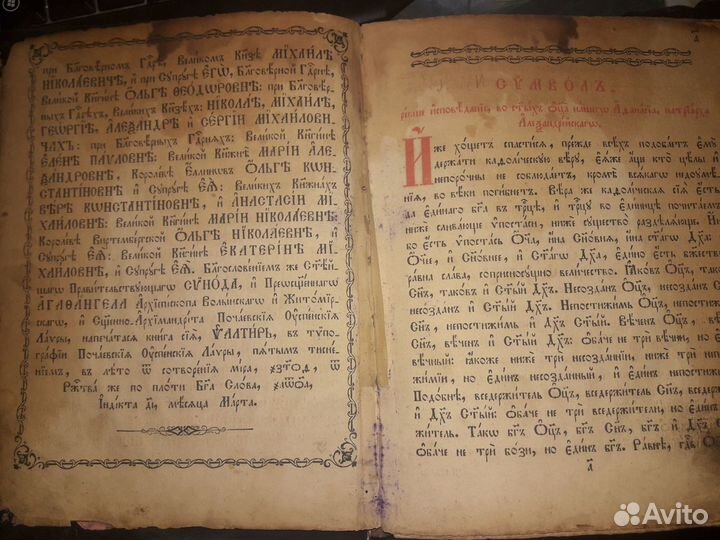 при Бл҃говѣрномъ Гдⷭ҇рѣ, Великомъ Кн҃зѣ МІХАИЛѢ
НІКОЛАЕВИЧѢ, и҆ при Сꙋпрꙋгѣ Є҆ГѠ̀, Бл҃говѣрной Гдⷭ҇рнѣ,
Великой Кн҃гинѣ О҆ЛЬГѢ ѲЕОДѠРОВНѢ: при Бл҃говѣр-
ныхъ Гдⷭ҇рѣхъ, Великихъ Кн҃зѣхъ: НІКОЛАѢ, МІХАИЛѢ,
ГЕѠРГІѢ, АЛЕѮАНДРѢ и҆ СЕРГІИ МІХАИЛОВИ-
ЧАХЪ: при Бл҃говѣрныхъ Гдⷭ҇рняхъ: Великой Кн҃гинѣ
ЕЛЕНѢ ПАѴЛОВНѢ: Великой Кн҃жнѣ МАРІИ АЛЕ-
ѮАНДРОВНѢ, Королевѣ Еллиновъ О҆ЛЬГѢ КѠН-
СТАНТІНОВНѢ и҆ Сꙋпрꙋгѣ Є҆Ѧ̀: Великихъ Кн҃жнахъ
ВѢРѢ КѠНСТАНТІНОВНѢ, и҆ АНАСТАСІИ МІ-
ХАИЛОВНѢ: Великой Кн҃гинѣ МАРІИ НІКОЛАЕВНѢ:
Королевѣ Виртембергской О҆ЛЬГѢ НІКОЛАЕВНѢ, и҆
Сꙋпрꙋгѣ Є҆Ѧ̀: Великой Кн҃гинѣ ЕКАТЕРІНѢ МІ-
ХАИЛОВНѢ, и҆ Сꙋпрꙋгѣ Є҆Ѧ̀. Бл҃гословенїемъ же Ст҃ѣй-
шагѡ Правительствꙋющагѡ СѴНОДА, и҆ Преѡсщ҃еннагѡ
АГАѲАНГЕЛА Архїепⷭ҇копа Волынскагѡ и҆ Житомїр-
скагѡ, и҆ Сщ҃енно-Архїмандрїта Почаевскїѧ Оу҆спенскїѧ
Лаѵры, напечатасѧ книга сїѧ, ѰАЛТИРЬ, въ тѷпо-
графїи Почаевскїѧ Оу҆спенскїѧ Лаѵры, пѧтымъ тисне-
нїемъ, въ лѣто ѿ сотворенїѧ мїра,
Рождⷭ҇тва же по плоти Бг҃а Слова,
Їндїкта мѣсѧца Марта.
СѴМВОЛЪ,
и҆сповѣданїе, во ст҃ыхъ Ѻ҆ц҃а нашегѡ А҆ѳанасїа, патрїарха
А҆леѯандрїйскагѡ.
И҆же хощетъ спастисѧ, прежде всѣхъ подобаетъ є҆мꙋ̀
держати каѳолическꙋю вѣрꙋ, є҆ѧже аще кто цѣлы и҆
непорочны не соблюдаетъ, кромѣ всѧкагѡ недоꙋмѣ-
нїѧ, во вѣки погибнетъ. Вѣра же каѳолическаѧ сїѧ є҆сть,
да є҆динаго Бг҃а въ Трⷪ҇цѣ, и҆ Трⷪ҇цꙋ во Є҆диницѣ почитаемъ,
ниже слиѧвающе ѵ҆постаси, ниже сꙋщество раздѣлѧюще. И҆на
бо є҆сть ѵ҆постась Ѻ҆ч҃а, и҆на Сн҃овнѧ, и҆на Ст҃агѡ Дх҃а:
Ѻ҆ч҃ее, и҆ Сн҃овнее, и҆ Ст҃агѡ Дх҃а, є҆дино є҆сть бж҃ество
равна слава, соприсносꙋщно величество. Ꙗ҆ковъ Ѻ҆ц҃ъ,
Сн҃ъ, таковъ и҆ Ст҃ый Дх҃ъ. Несозданъ Ѻ҆ц҃ъ, несозданъ
Сн҃ъ, несозданъ и҆ Ст҃ый Дх҃ъ. Непостижимъ Ѻ҆ц҃ъ,
Сн҃ъ, непостижимъ и҆ Ст҃ый Дх҃ъ. Вѣченъ Ѻ҆ц҃ъ,
Сн҃ъ, вѣченъ и҆ Ст҃ый Дх҃ъ. Ѻ҆баче не три вѣчнїи, но є҆ди
вѣчный: ꙗ҆коже ниже три несозданнїи, ниже три
жимїи, но є҆динъ несозданный, и҆ є҆динъ непостиж
Подобнѣ, вседержитель Ѻ҆ц҃ъ, вседержитель Сн҃ъ,
и҆ Дх҃ъ Ст҃ый: ѻ҆баче не три вседержители, но є҆динъ
житель. Такѡ Бг҃ъ Ѻ҆ц҃ъ, Бг҃ъ Сн҃ъ, Бг҃ъ и҆ Дх҃ъ
ѻ҆баче не три бози, но є҆динъ Бг҃ъ. Равнѣ,
а҃
Avito